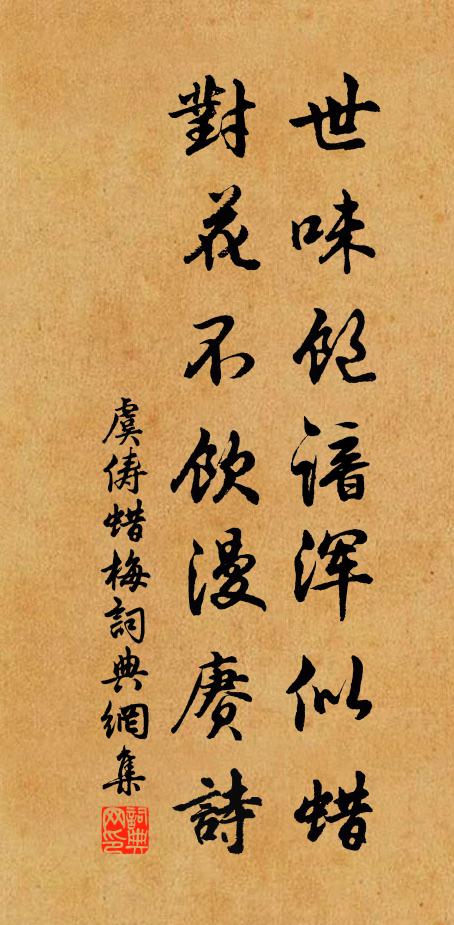 世味飽諳渾似蜡
對花不飲漫赓詩
虞俦蜡梅詞典網集
詞典网印